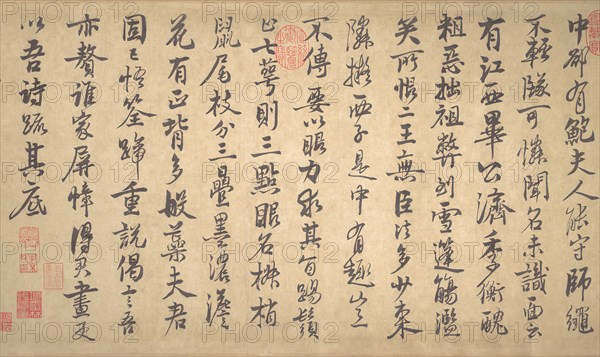 中卻有鮑夫人能守師繩
不輕墜可憐聞名未識面云
有江西畢公濟季衡醜
粗惡拙祖弊到雪蓬觴濫
矣所恨二王無臣法多少東
隣擬西子是中有趣豈
不傳要以眼力求其旨踢鬚
止七萼則三點眼名椒梢
鼠尾枝分三疊墨濃淡
花有正背多般蘂夫君
固已悟筌蹄重說偈言吾
亦贅誰家屏幛得君畫更
以吾詩疏其底